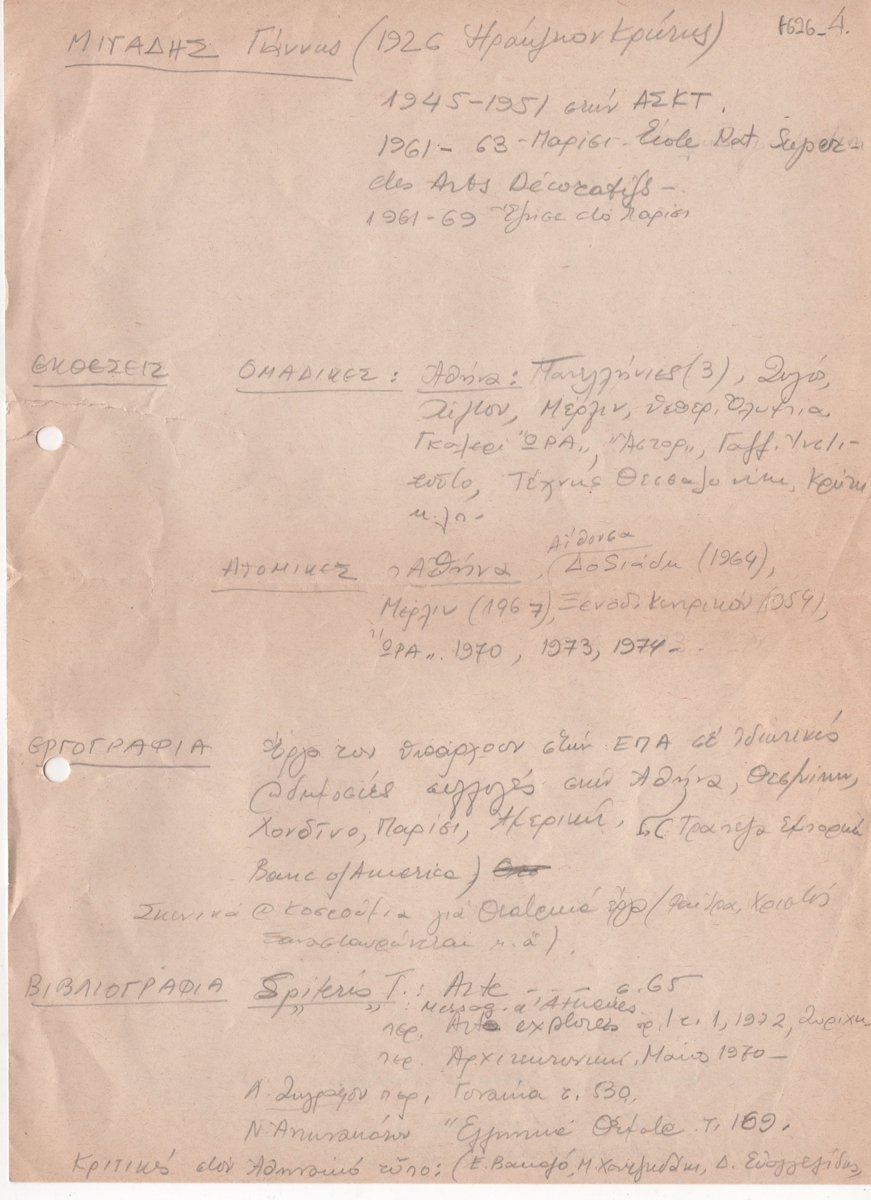 1626-4.
ΜΙΓΑΔΗΣ Γιάννης (1926 Ηράκλειον Κρήτης)
1945-1951 στήν ΑΣΚΤ.
1961 - 63 - Παρίσι - École Nat. Super-
des Arts Décoratifs -
1961-69 Έζησε στό Παρίσι
ΕΚΘΕΣΕΙΣ ΟΜΑΔΙΚΕΣ : Αθήνα : Πανελλήνιες (3), Ζυγό,
Χίλτον, Μέρλιν,
Γκαλερί "ΩΡΑ", "Άστορ", Γαλλ. Ινστι-
τούτο, Τέχνης Θεσσαλονίκη, Κρήτη
κ.λπ.
ΑΤΟΜΙΚΕΣ : Αθήνα, Αίθουσα Δοξιάδη (1964),
Μέρλιν (1967),
"ΩΡΑ" 1970, 1973, 1974 -
ΕΡΓΟΓΡΑΦΙΑ Έργα του υπάρχουν στήν ΕΠΑ σέ ιδιωτικές
@ δημοσίες συλλογές στήν Αθήνα, Θεσ/νίκη,
Λονδίνο, Παρίσι, Αμερική. (Τραπεζα Εμπορική
Banc of America)
Σκηνικά @ Κοστούμια γιά Θεατρικά έργα (Φαίδρα, Χριστός
Ξανασταυρώνεται κ.ά).
ΒΙΒΛΙΟΓΡΑΦΙΑ Spiteris T. : Arte - - - - σ. 65
" " : a' Athenes
περ. Arts explores 1 τ. 1, 1972, Ζυρίχη
περ. Αρχιτεκτονική, Μαιος 1970 -
περ. Γυναίκα τ. 530,
"Ελληνικά Θέματα τ. 169.
Κριτικές στόν Αθηναικό τύπο : (Ε. Βακαλό, Δ. Ευαγγελίδης,